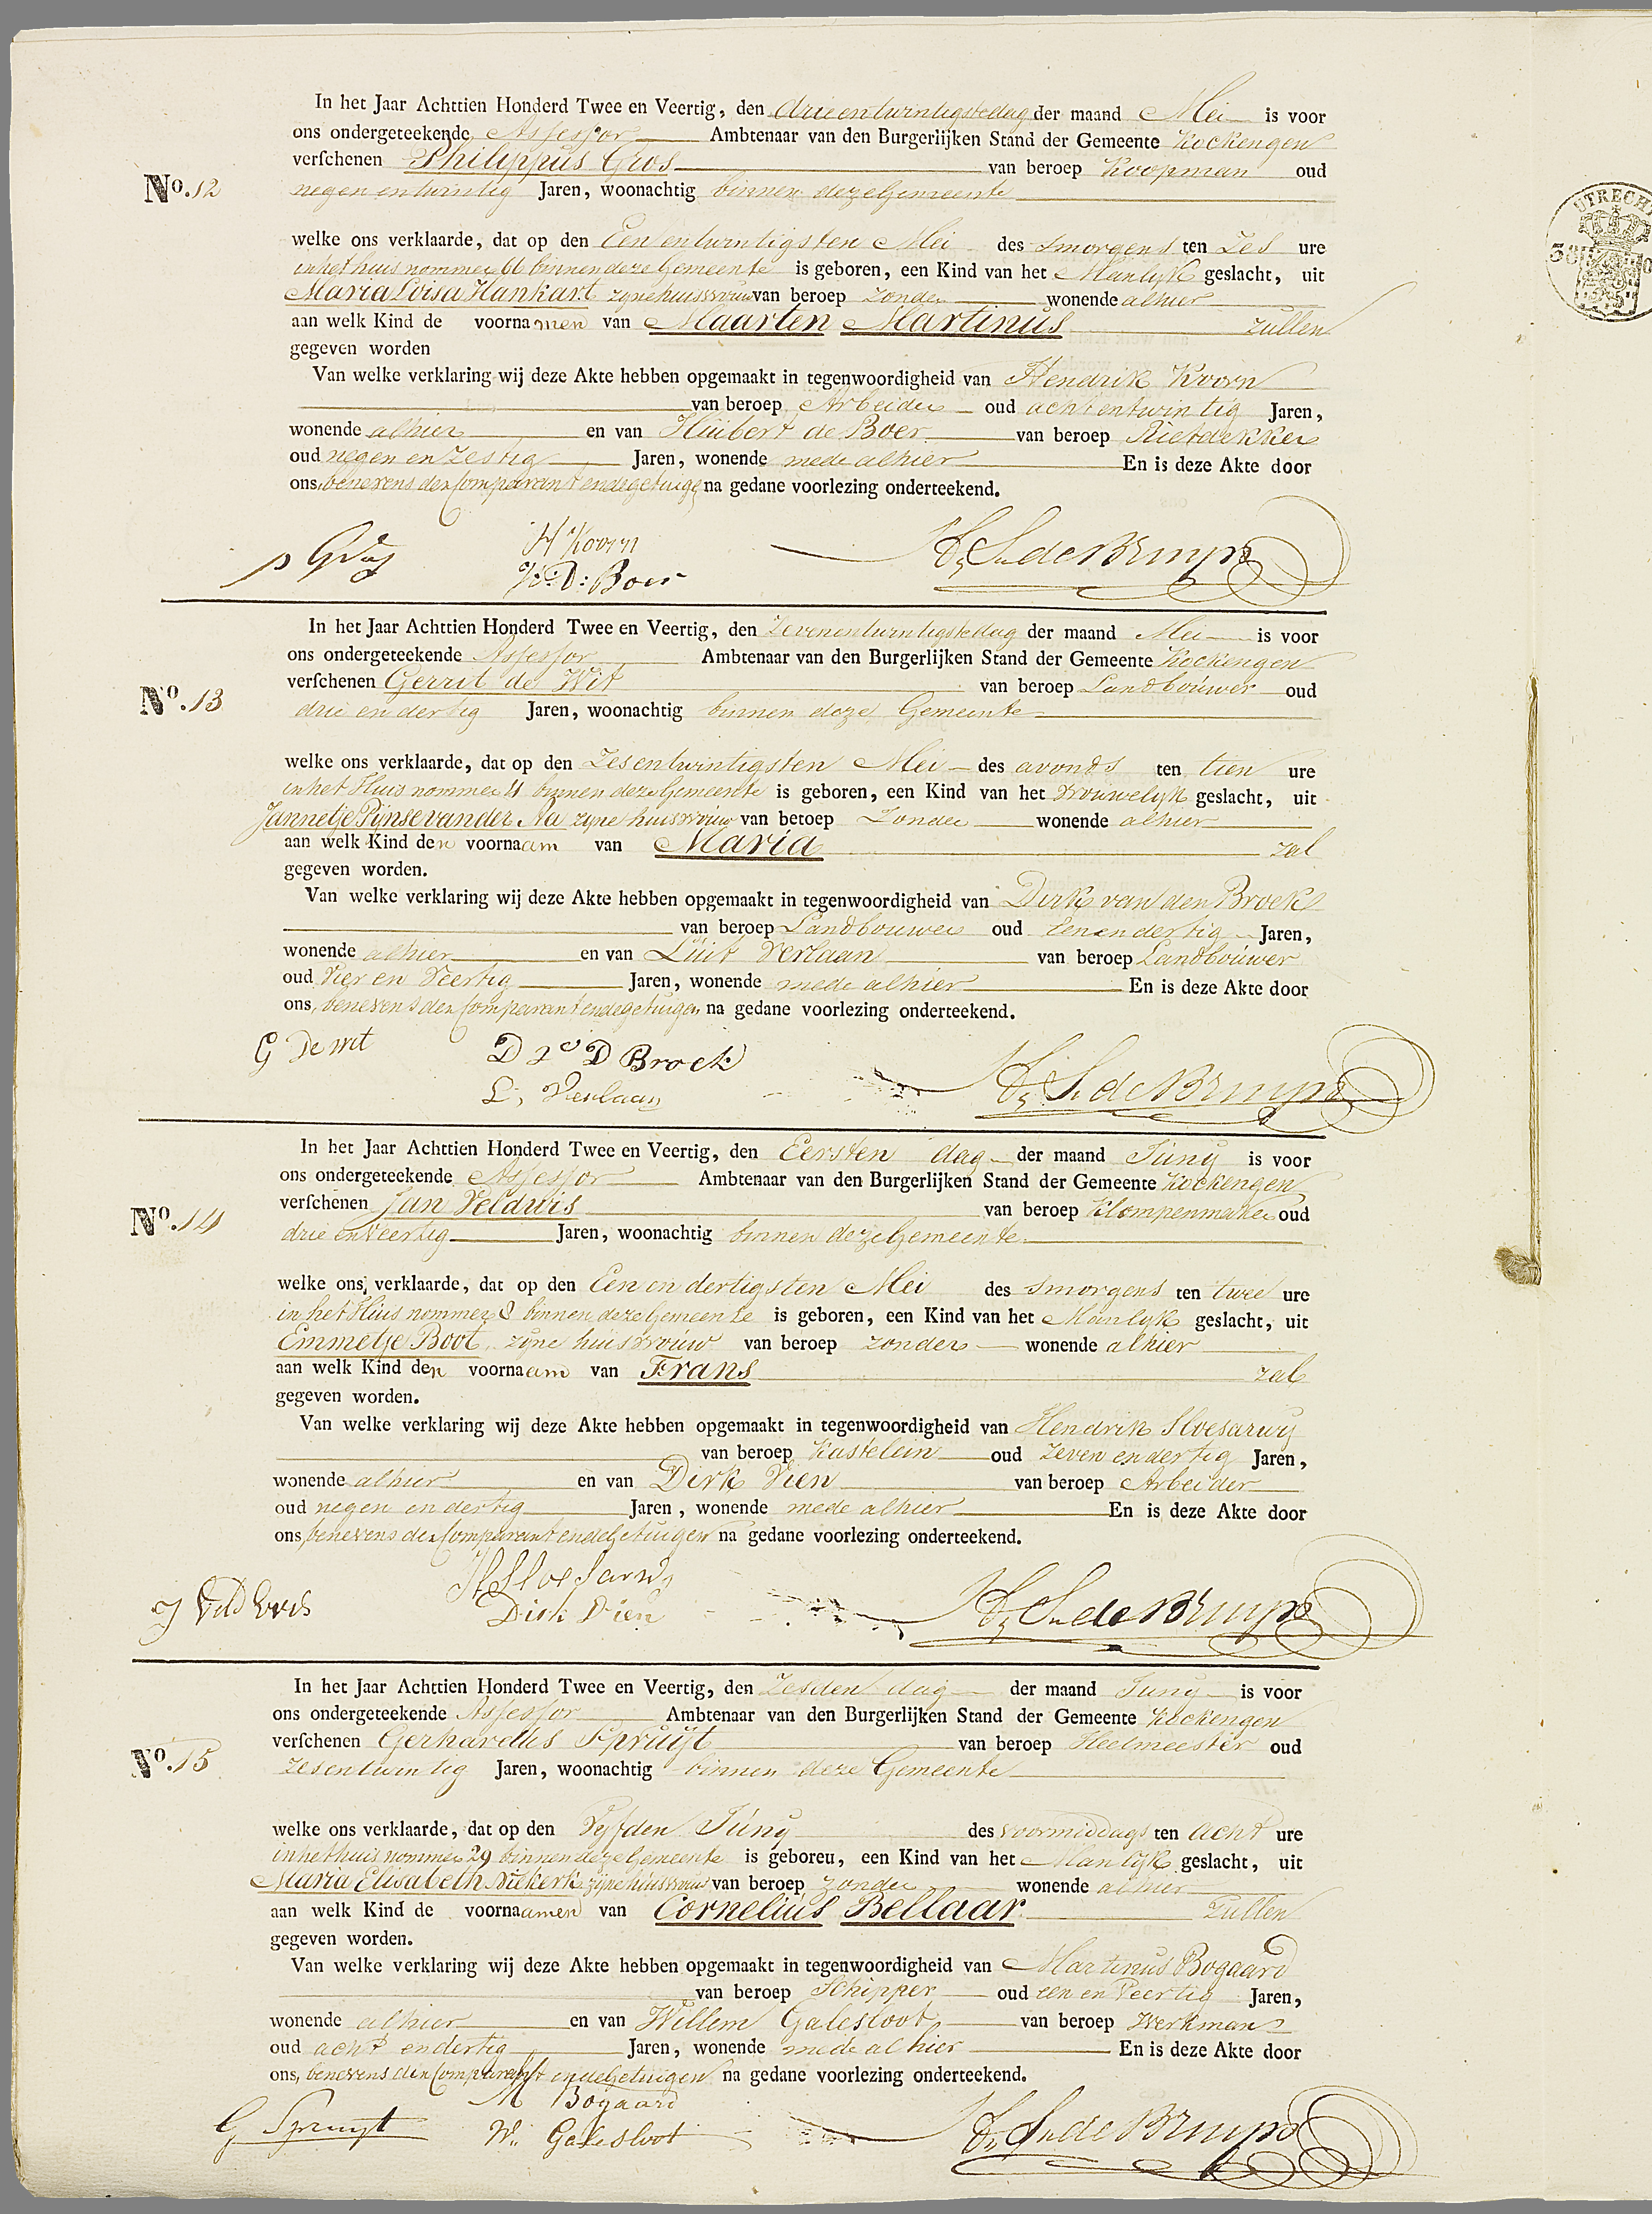 In het Jaar Achttien Honderd Twee en Veertig, den drieentwintigstedag der maand Mei is voor
ons ondergeteekende Assessor Ambtenaar van den Burgerlijken Stand der Gemeente Kockengen
verschenen Philippus Gros van beroep Koopman oud
No. 12 negen en twintig Jaren, woonachtig binnen deze Gemeente
welke ons verklaarde, dat op den Een en twintigsten Mei des smorgens ten Zes ure
in het huis nommer 66 binnen deze Gemeente is geboren, een Kind van het Manlijk geslacht, uit
Maria Loisa Hankart zijne huisvrouw van beroep zonder wonende alhier
aan welk Kind de voornamen van Maarten Martinus zullen
gegeven worden
Van welke verklaring wij deze Akte hebben opgemaakt in tegenwoordigheid van Hendrik Koorn
van beroep Arbeider oud acht en twintig Jaren,
wonende alhier en van Huibert de Boer van beroep Rietdekker
oud negen en zestig Jaren, wonende mede alhier En is deze Akte door
ons, benevens den Comparant en de getuige na gedane voorlezing onderteekend.
p Gros H Koorn
H: D: Boer
UTRECHT
In het Jaar Achttien Honderd Twee en Veertig, den Zevenentwintigstedag der maand Mei is voor
ons ondergeteekende Assessor Ambtenaar van den Burgerlijken Stand der Gemeente Kockengen
verschenen Gerrit de Wit van beroep Landbouwer oud
No. 13 drie en dertig Jaren, woonachtig binnen deze Gemeente
welke ons verklaarde, dat op den Zesentwintigsten Mei des avonds ten tien ure
in het Huis nommer 4 binnen deze Gemeente is geboren, een Kind van het Vrouwelijk geslacht, uit
Jannetje Pijnse van der Aa zijne huisvrouw van beroep Zonder wonende alhier
aan welk Kind den voornaam van Maria zal
gegeven worden.
Van welke verklaring wij deze Akte hebben opgemaakt in tegenwoordigheid van Dirk van den Broek
van beroep Landbouwer oud een en dertig Jaren,
wonende alhier en van Luit Verlaan van beroep Landbouwer
oud Vier en Veertig Jaren, wonende mede alhier En is deze Akte door
ons, benevens den Comparant en de getuigen na gedane voorlezing onderteekend.
G De wit D v D Broek
L, Verlaan
In het Jaar Achttien Honderd Twee en Veertig, den Eersten dag der maand Juny is voor
ons ondergeteekende Assessor Ambtenaar van den Burgerlijken Stand der Gemeente Kockengen
verschenen Jan Veldwis van beroep Klompenmaker oud
No. 14 drie en veertig Jaren, woonachtig binnen deze Gemeente
welke ons verklaarde, dat op den Een en dertigsten Mei des smorgens ten twee ure
in het Huis nommer 8 binnen deze Gemeente is geboren, een Kind van het Manlijk geslacht, uit
Emmetje Boot zijne huisvrouw van beroep zonder wonende alhier
aan welk Kind den voornaam van Frans zal
gegeven worden.
Van welke verklaring wij deze Akte hebben opgemaakt in tegenwoordigheid van Hendrik Sloesarwij
van beroep Kastelein oud zeven en dertig Jaren,
wonende alhier en van Dirk Vien van beroep Arbeider
oud negen en dertig Jaren, wonende mede alhier En is deze Akte door
ons, benevens den Comparant en de Getuigen na gedane voorlezing onderteekend.
H Sloesarwij
J Veldwis Dirk Vien
In het Jaar Achttien Honderd Twee en Veertig, den Zesden dag der maand Juny is voor
ons ondergeteekende Assessor Ambtenaar van den Burgerlijken Stand der Gemeente Kockengen
verschenen Gerhardus Spruijt van beroep Heelmeester oud
No. 15 zesentwintig Jaren, woonachtig binnen deze Gemeente
welke ons verklaarde, dat op den Vijfden Juny des voormiddags ten acht ure
in het huis nommer 29 binnen deze Gemeente is geboren, een Kind van het Manlijk geslacht, uit
Maria Elisabeth Niekerk zijne huisvrouw van beroep zonder wonende alhier
aan welk Kind de voornaamen van Cornelius Bellaar zullen
gegeven worden.
Van welke verklaring wij deze Akte hebben opgemaakt in tegenwoordigheid van Martinus Bogaard
van beroep Schipper oud een en Veertig Jaren,
wonende alhier en van Willem Galesloot van beroep Werkman
oud acht en dertig Jaren, wonende mede alhier En is deze Akte door
ons, benevens den Comparant en de Getuigen na gedane voorlezing onderteekend.
M Bogaard
G Spruijt W. Galesloot